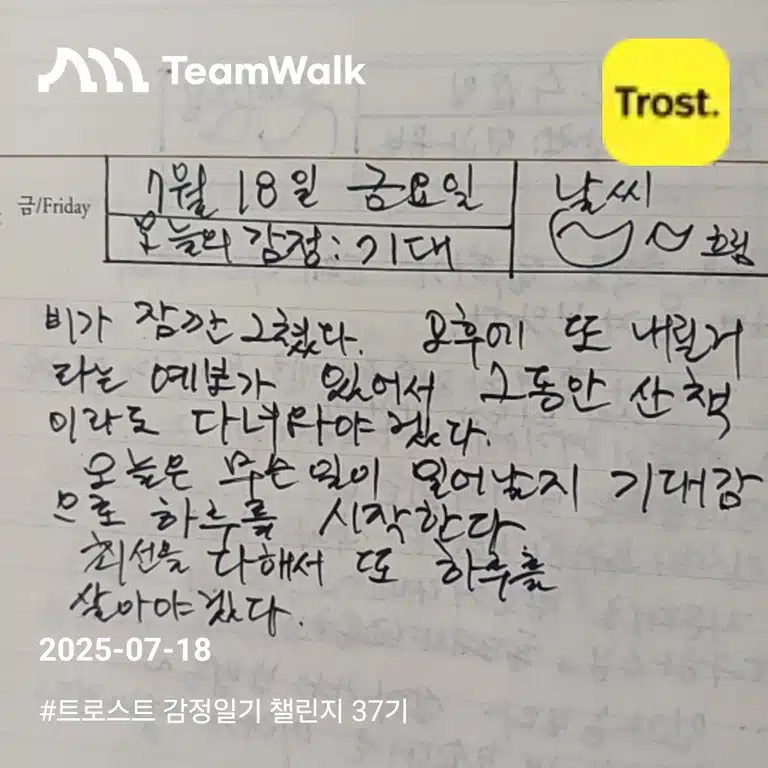 TeamWalk
Trost.
금/Friday
7월 18일 금요일
날씨
오늘의 감정: 기대
흐림
비가 잠깐 그쳤다. 오후에 또 내릴거
라는 예보가 있어서 그동안 산책
이라도 다녀와야겠다.
오늘은 무슨 일이 일어날지 기대감
으로 하루를 시작한다
최선을 다해서 또 하루를
살아야겠다.
2025-07-18
#트로스트 감정일기 챌린지 37기